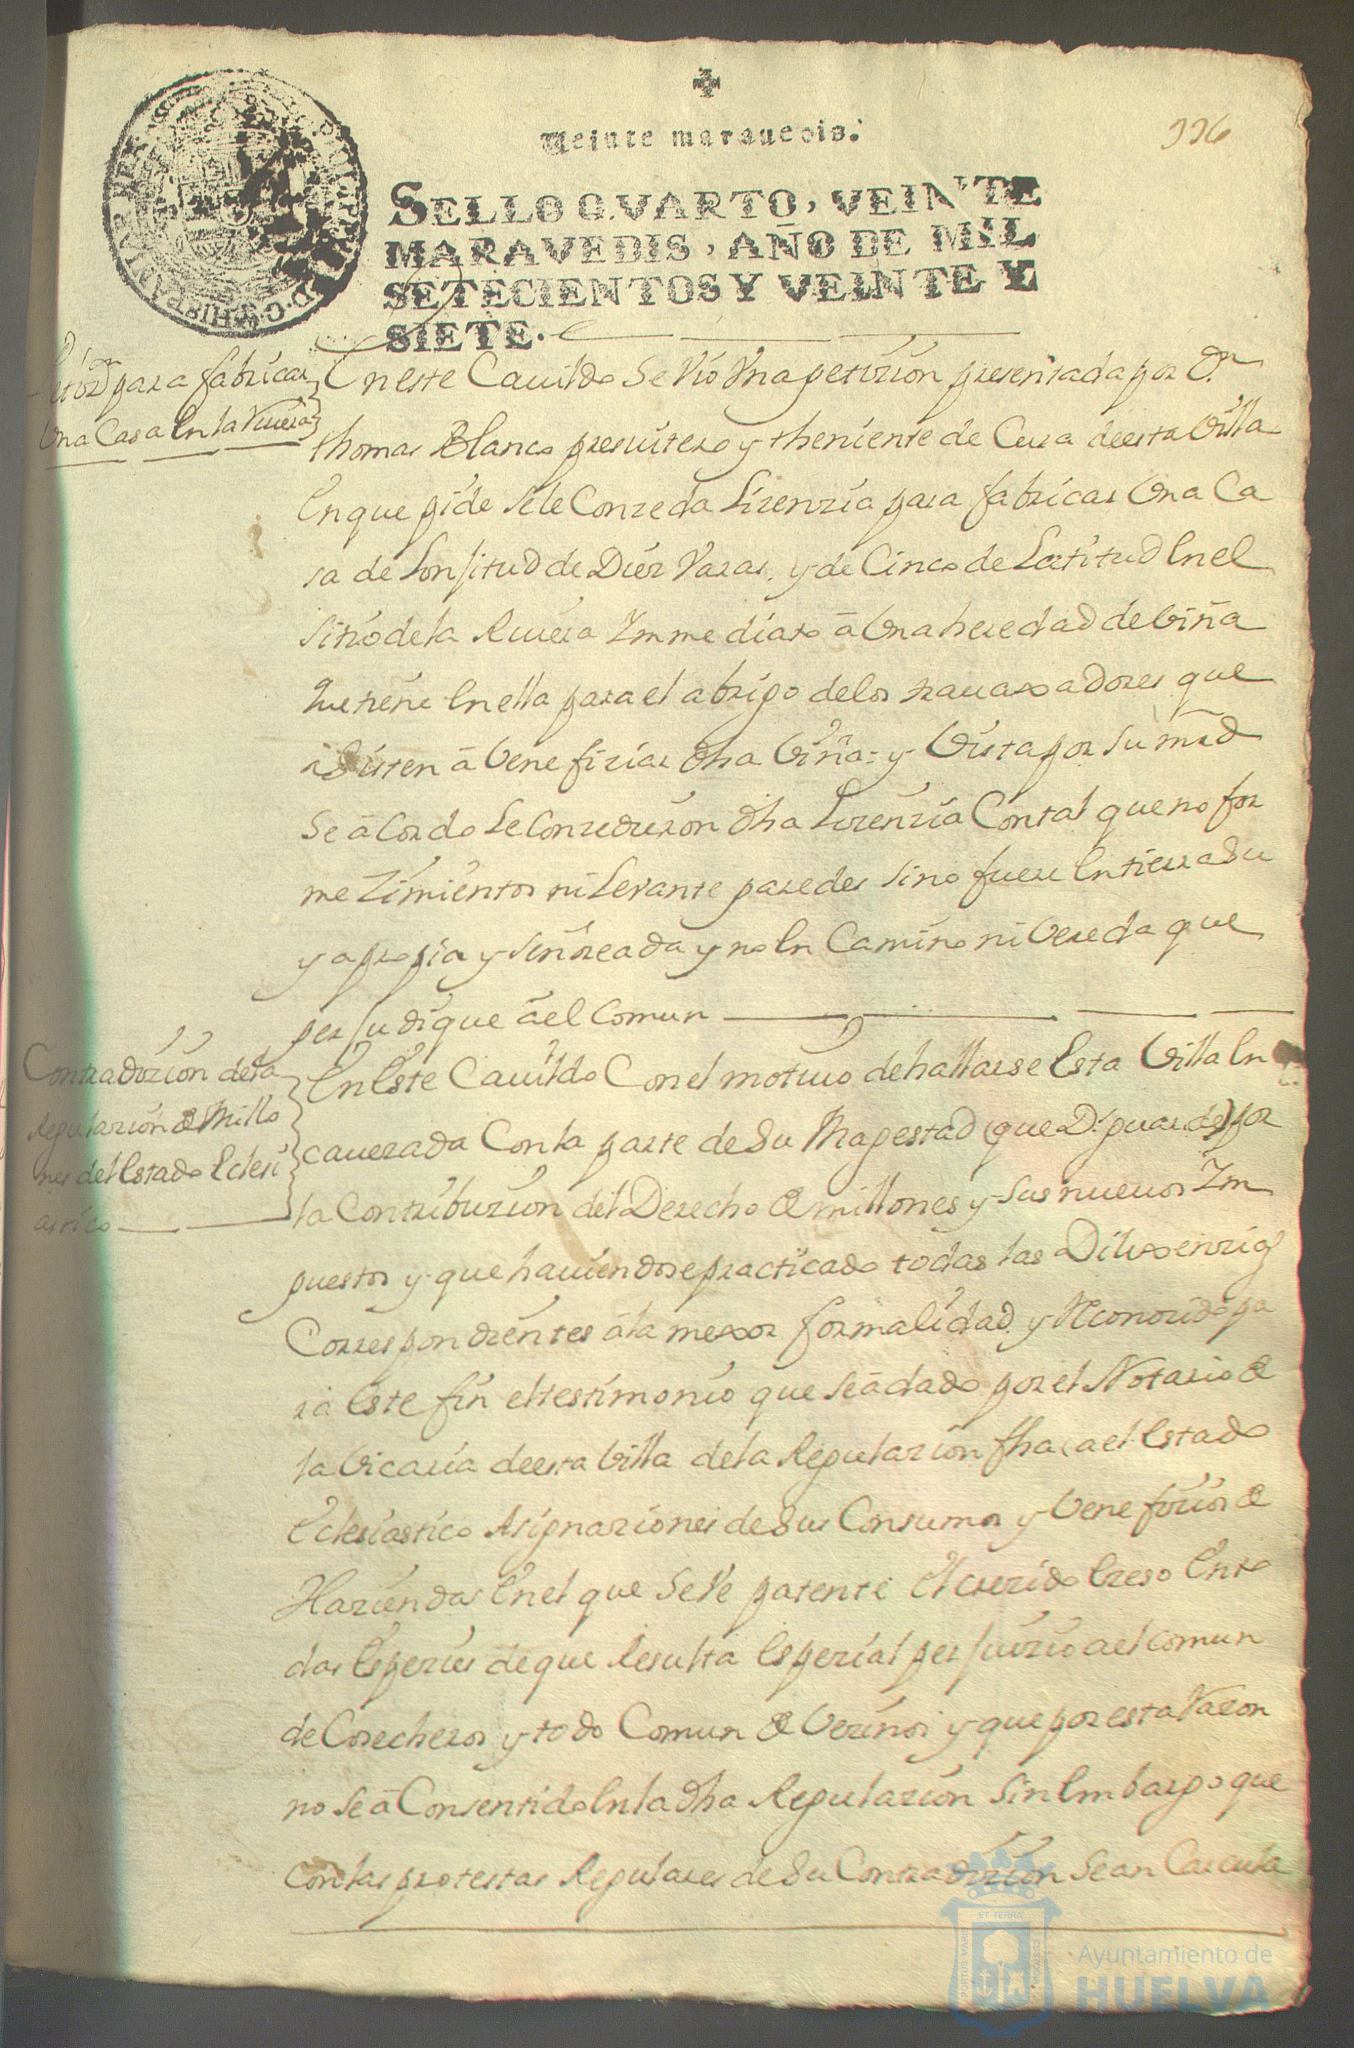 336
Veinte marauedis.
SELLO QVARTO, VEINTE
MARAVEDIS, AÑO DE MIL
SETECIENTOS Y VEINTE Y
SIETE.
para fabricar
Una Casa En la Riuera
En este Cauildo Se Vio Vna petizion presentada por Dn
thomas Blanco presuitero y theniente de Cura de esta Villa
En que pide se le Conzeda Lizenzia para fabricar Una Ca
sa de Lonjitud de Diez Varas, y de Cinco de Latitud En el
sitio de la Riuera Ymmediato â Una heredad de Viña
que tiene En ella para el abrigo de los trauaxadores que
asisten â Venefiziar dha Viña = y Vista por su mrd
Se âcordo Le Conzedieron dha Lizenzia Con tal que no for
me Zimientos ni Levante paredes sino fuere En tierra Su
ya propia y señoreada y no En Camino ni Vereda que
perjudique âel Comun
Contradizion de la
Regulazion de Millo
nes del Estado Eclesi
astico
En Este Cauildo Con el motiuo de hallarse Esta Villa En
cauezada Con la parte de Su Magestad (que Ds guarde) por
la Contribuzion del Derecho de millones y sus nueuos Ym
puestos y que hauiendose practicado todas las Dilixenzias
Correspondientes â la mexor formalidad y Reconozido pa
ra Este fin el testimonio que se â dado por el Notario de
la Vicaria de esta Villa de la Regulazion fha a el Estado
Eclesiastico Asignaziones de Sus Consumos y Venefizios de
Haziendas En el que Se Ve patente El crezido Exeso En to
das Espezies de que Resulta Espezial perjuizio a el comun
de Cosecheros y todo Comun de Vezinos y que por esta Razon
no se â Consentido En la dha Regulazion Sin Embargo que
con las protestas Regulares de Su Contradizion Sean
Ayuntamiento de
HUELVA